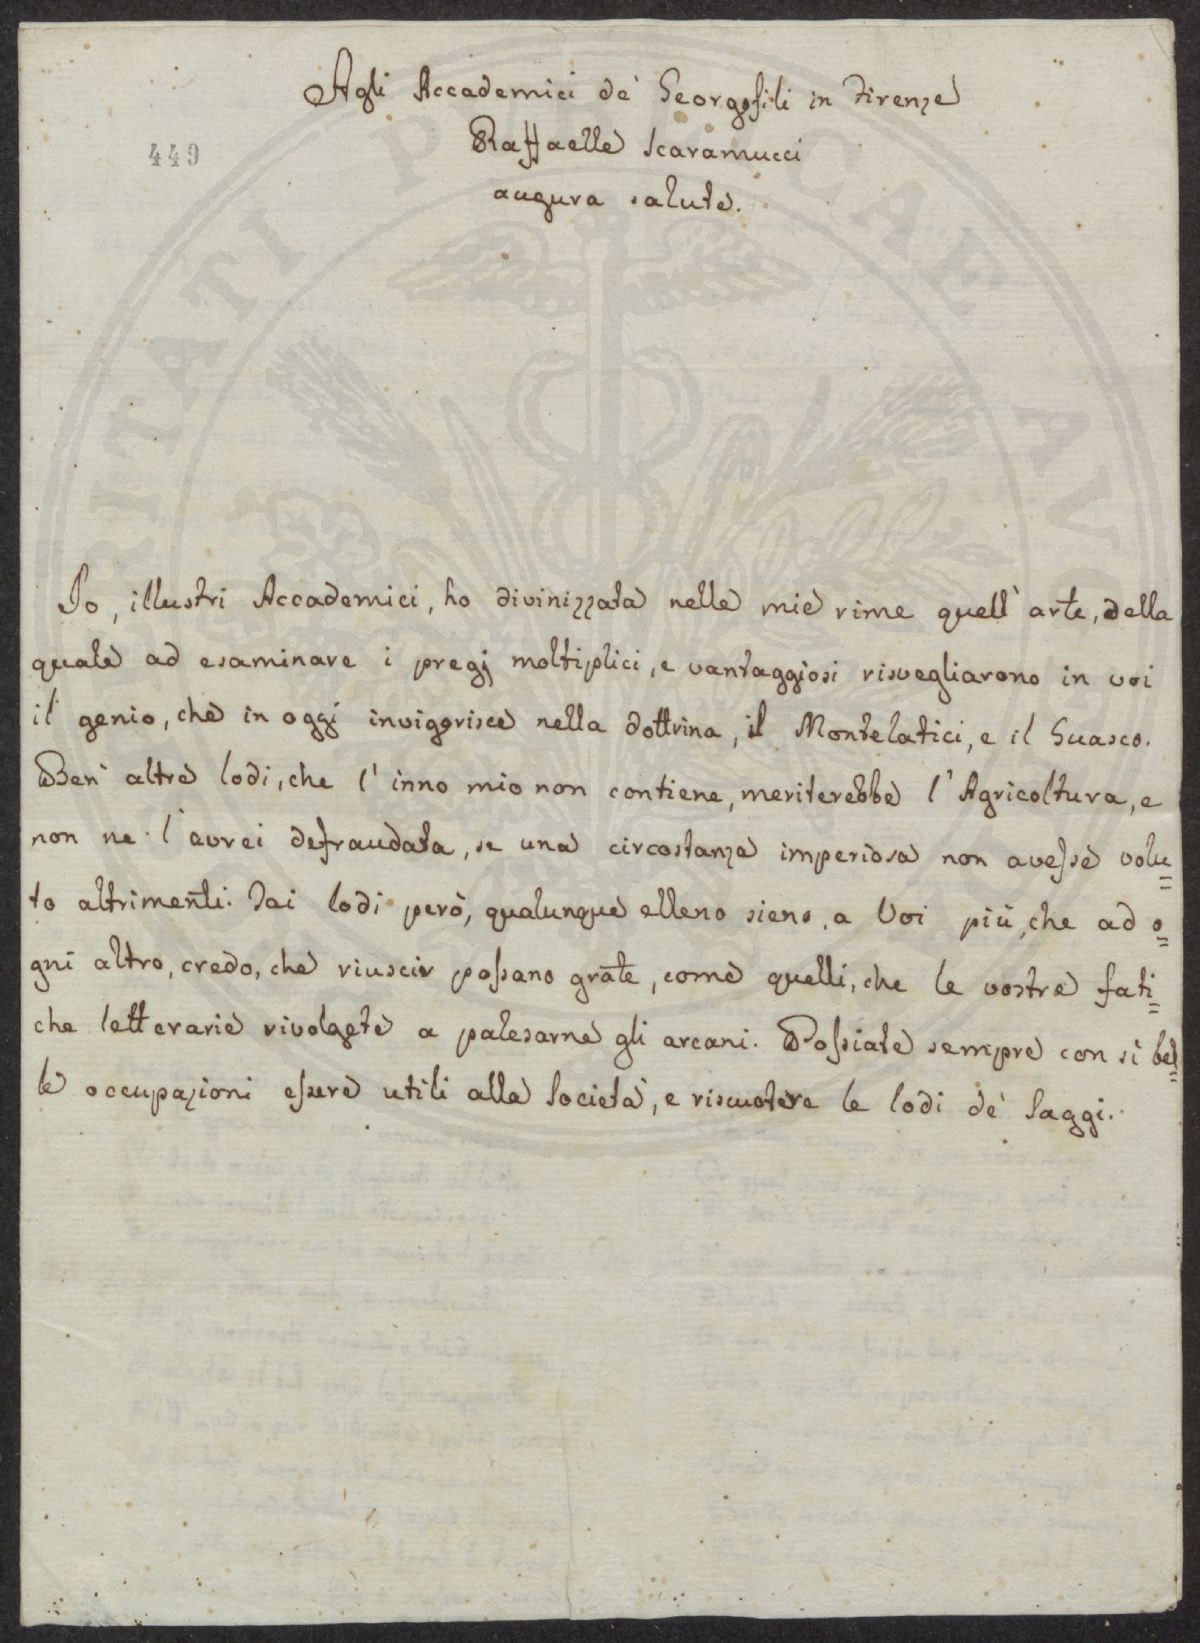 Agli Accademici de' Georgofili in Firenze
449
Raffaelle Scaramucci
augura salute.
Io, illustri Accademici, ho divinizzata nelle mie rime quell' arte, della
quale ad esaminare i pregj moltiplici, e vantaggiosi risvegliarono in voi
il genio, che in oggi invigorisce nella dottrina, il Montelatici, e il Guasco.
Ben' altre lodi, che l' inno mio non contiene, meriterebbe l' Agricoltura, e
non ne l' avrei defraudata, se una circostanza imperiosa non avesse volu=
to altrimenti. Tai lodi però, qualunque elleno sieno, a Voi più, che ad o=
gni altro, credo, che riuscir possano grate, come quelli, che le vostre fati=
che letterarie rivolgete a palesarne gli arcani. Possiate sempre con sì bel=
le occupazioni essere utili alla Società, e riscuotere le lodi de' Saggi.